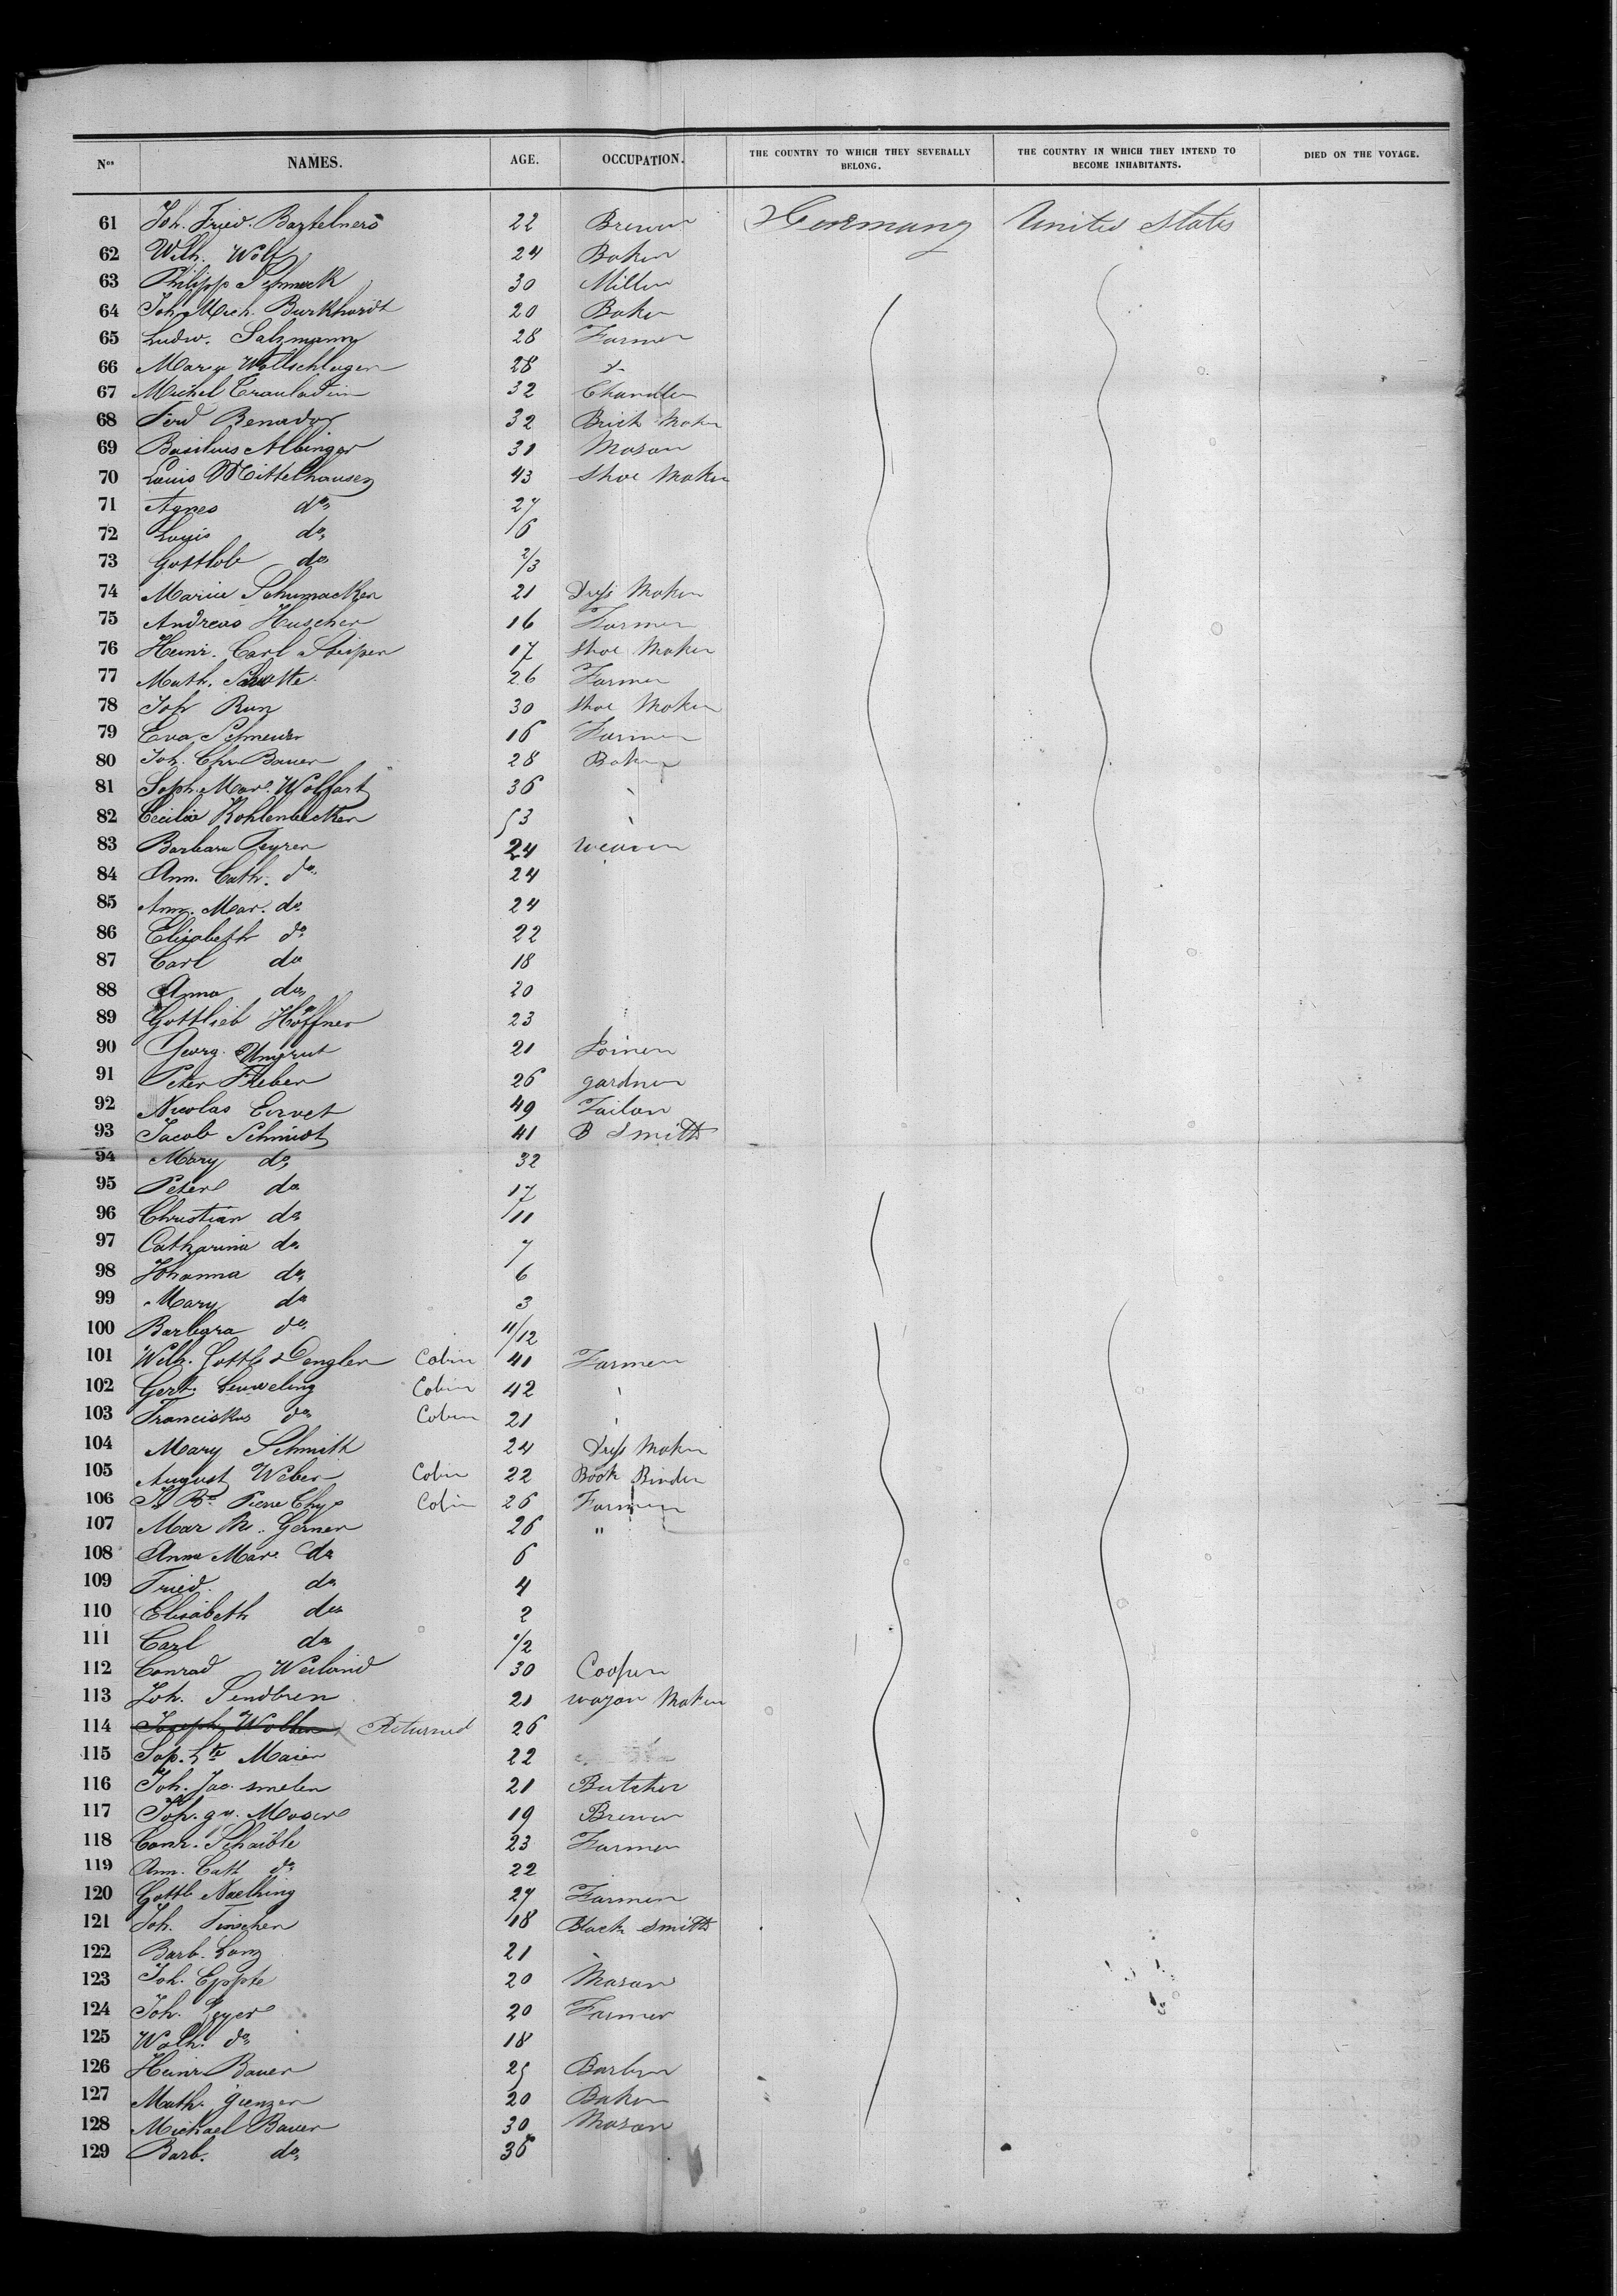 Nos NAMES. AGE. OCCUPATION. THE COUNTRY TO WHICH THEY SEVERALLY BELONG. THE COUNTRY IN WHICH THEY INTEND TO BECOME INHABITANTS. DIED ON THE VOYAGE.
61 Joh. Fried. 22 Brewer Germany United States
62 Wilh. Wolf 24 Baker
63 Philipp Schmeck 30 Miller
64 Joh. Mich. Burkhardt 20 Baker
65 Ludw. Salzmann 28 Farmer
66 Mary Wollschlager 28
67 Michel 32 Chandler
68 Ferd 32 Brick Maker
69 Basilius Albinger 31 Mason
70 Louis Mittelhausen 43 Shoe Maker
71 Agnes do 27
72 Louis do 6
73 Gottlob do 2/3
74 Marie Schumacker 21 Dress Maker
75 Andreas Huscher 16 Farmer
76 Heinr. Carl 17 Shoe Maker
77 Math. 26 Farmer
78 Joh Run 30 Shoe Maker
79 Eva 16 Farmer
80 Joh. Chr Bauer 28 Baker
81 Soph. Mar. Wolfart 36
82 Cecilie Kohlenbecker 53
83 Barbara 24 weaver
84 Ann. Cath. do 24
85 Ann. Mar. do 24
86 Elisabeth do 22
87 Carl do 18
88 Anna do 20
89 Gottlieb Höffner 23
90 Georg. Ungrut 21 Joiner
91 Peter 26 gardner
92 Nicolas 49 Tailor
93 Jacob Schmidt 41 B Smith
94 Mary do 32
95 Peter do 17
96 Christian do 11
97 Catharina do 7
98 Johanna do 6
99 Mary do 3
100 Barbara do 11/12
101 Wilh. Gottl. Dengler Cabin 41 Farmer
102 Gert. Leuweling Cabin 42
103 Franciskus do Cabin 21
104 Mary Schmith 24 Dress Maker
105 August Weber Cabin 22 Book Binder
106 Pierre Cabin 26 Farmer
107 Mar M. Gerner 26 "
108 Anna Mar. do 6
109 Fried. do 4
110 Elisabeth do 2
111 Carl do 1/2
112 Conrad Weiland 30 Cooper
113 Joh. 21 wagon Maker
114 Joseph Returned 26
115 Maier 22
116 Joh. Jac. smeler 21 Butcher
117 Joh. Moser 19 Brewer
118 Conr. Schaible 23 Farmer
119 Ann. Cath do 22
120 Gottl. 27 Farmer
121 Joh. Tischer 18 Black Smith
122 Barb. Lanz 21
123 Joh. Epple 20 Mason
124 Joh. 20 Farmer
125 do 18
126 Heinr Bauer 25 Barber
127 Math. Genzer 20 Baker
128 Michael Bauer 30 Mason
129 Barb. do 36